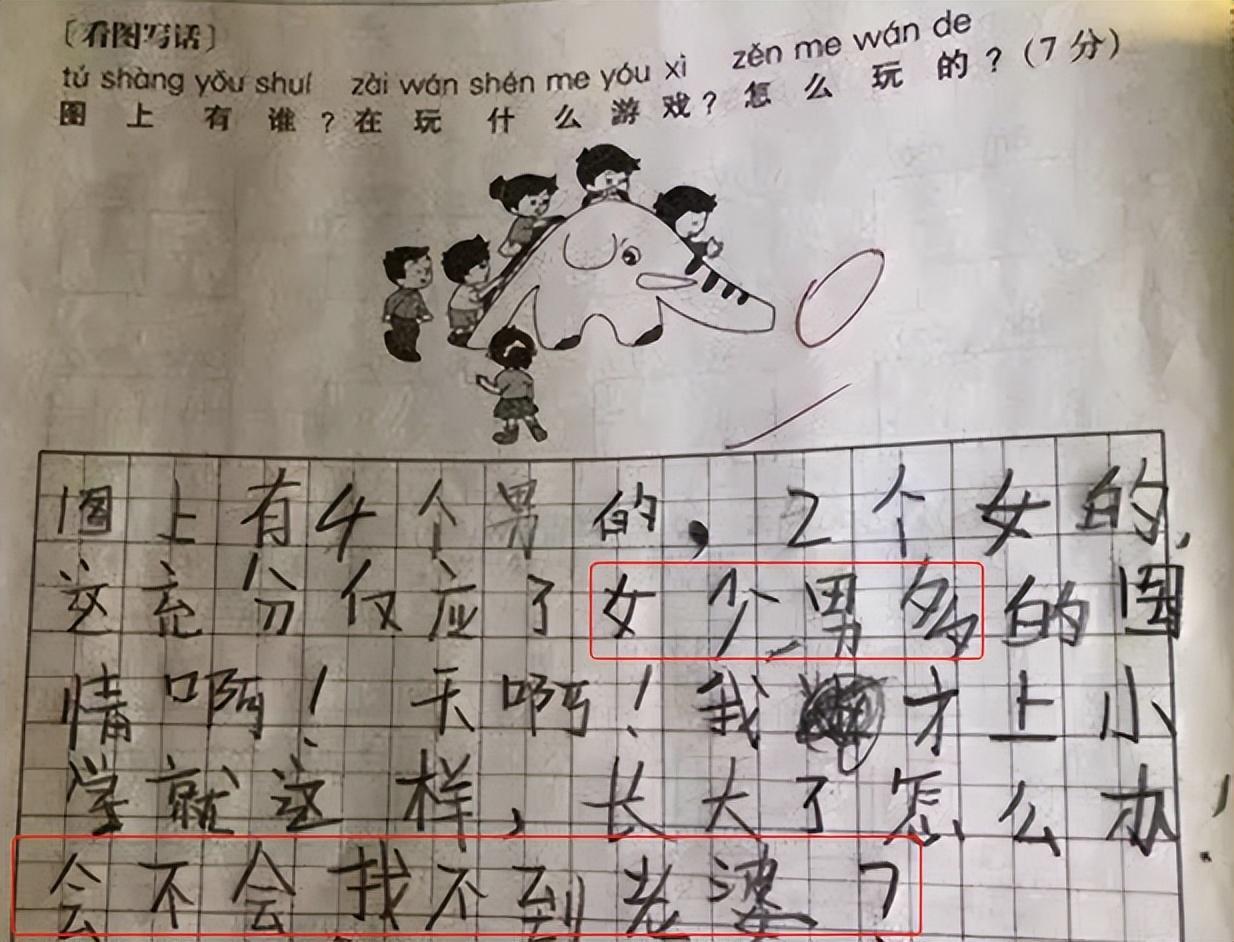 〔看图写话〕
tú shàng yǒu shuí zài wán shén me yóu xì zěn me wán de
图上有谁?在玩什么游戏?怎么玩的?(7分)
图上有4个男的,2个女的,
这充分仅应了女少男多的国
情啊!天啊!我才上小
学就这样,长大了怎么办!
会不会找不到老婆?